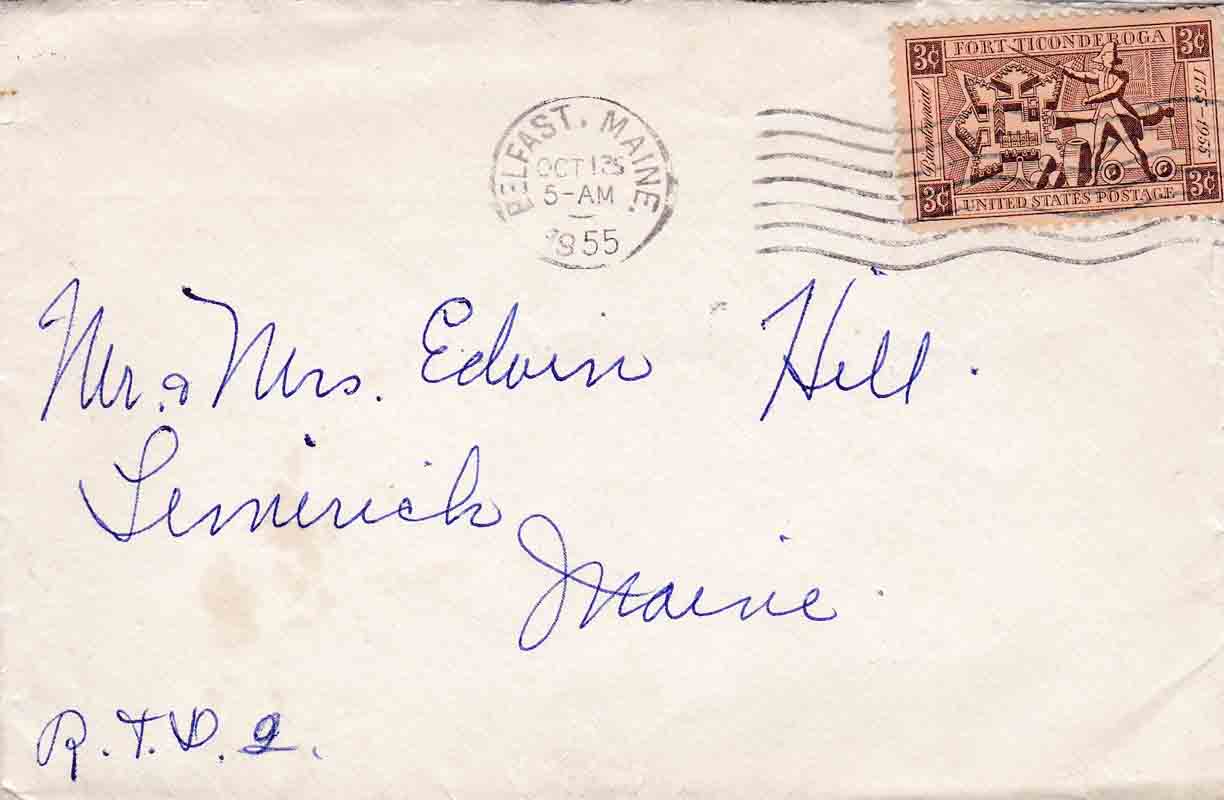 3¢ FORT TICONDEROGA 3¢
Bicentennial
1755-1955
3¢ UNITED STATES POSTAGE 3¢
BELFAST, MAINE.
OCT
5-AM
1955
Mr. & Mrs. Edwin Hill.
Limerick
Maine.
R.F.D. 2.